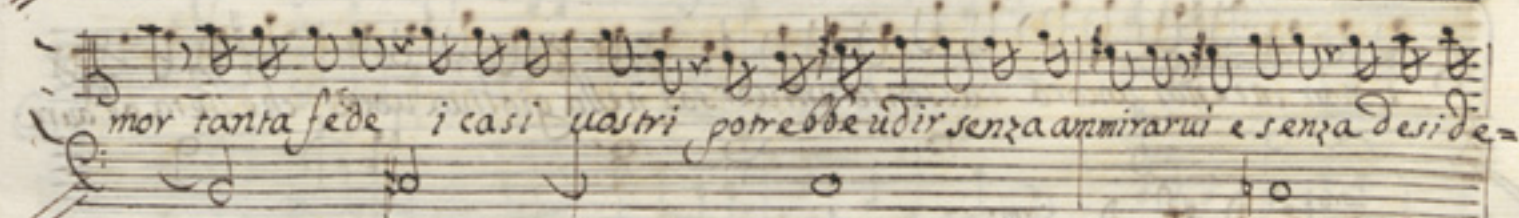 mor tanta fede i casi uostri potrebbe udir senza ammirarui e senza deside=